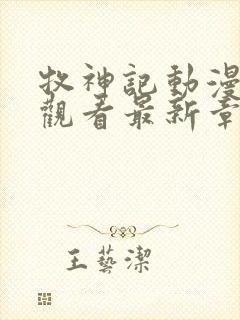 牧神記動漫
觀看最新章
王藝潔